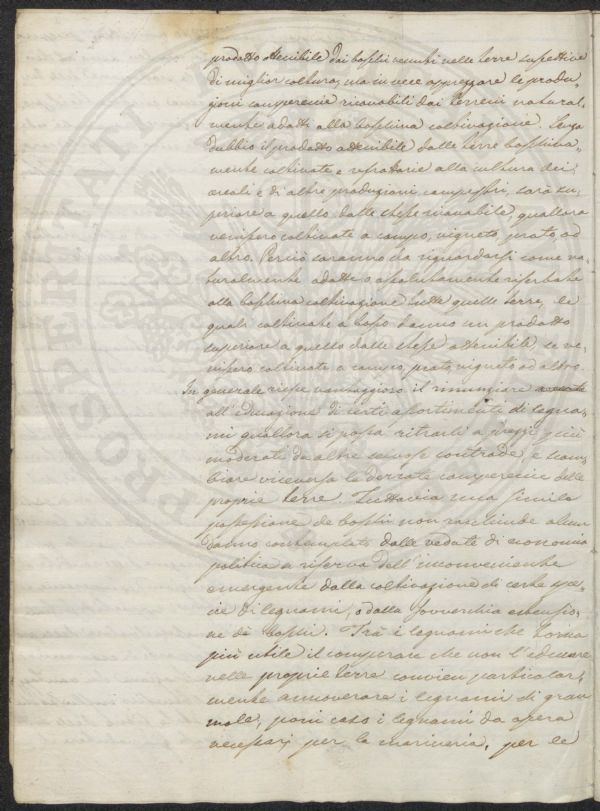 prodotto ottenibile dai boschi cresciuti nelle terre suscettive
di miglior coltura, ma invece apprezzare le produ,
zioni campereccie ricavabili dai terreni natural,
mente adatti alla boschiva coltivazione. Senza
dubbio il prodotto ottenibile dalle terre boschiva,
mente coltivate e refrattarie alla cultura dei
cereali e di altre produzioni campestri, sarà su,
periore a quello dalle stesse ricavabile, quallora
venissero coltivate a campo, vigneto, prato, od
altro. Perciò saranno da riguardarsi come na,
turalmente adatte o assolutamente riserbate
alla boschiva coltivazione tutte quelle terre, le
quali coltivate a bosco danno un prodotto
superiore a quello dalle stesse ottenibile se ve,
nissero coltivate a campo, prato, vigneto od altro.
In generale riesce vantaggioso il rinunziare
all'educazione di certi assortimenti di legna,
mi quallora si possa ritrarli a prezzi più
moderati da altre selvose contrade, e scam,
biare viceversa le derrate campereccie delle
proprie terre. Tuttavia una simile
possessione de boschi non racchiude alcun
danno contemplato dalle vedute di economia
politica a riserva dell'inconveniente
emergente dalla coltivazione di certe spe,
cie di legnami, o dalla soverchia estensio,
ne di boschi. Frà i legnami che torna
più utile il comperare che non l'educare
nelle proprie terre convien particolar,
mente annoverare i legnami di gran
mole, poni caso i legnami da opera
necessarj per la marineria, per le